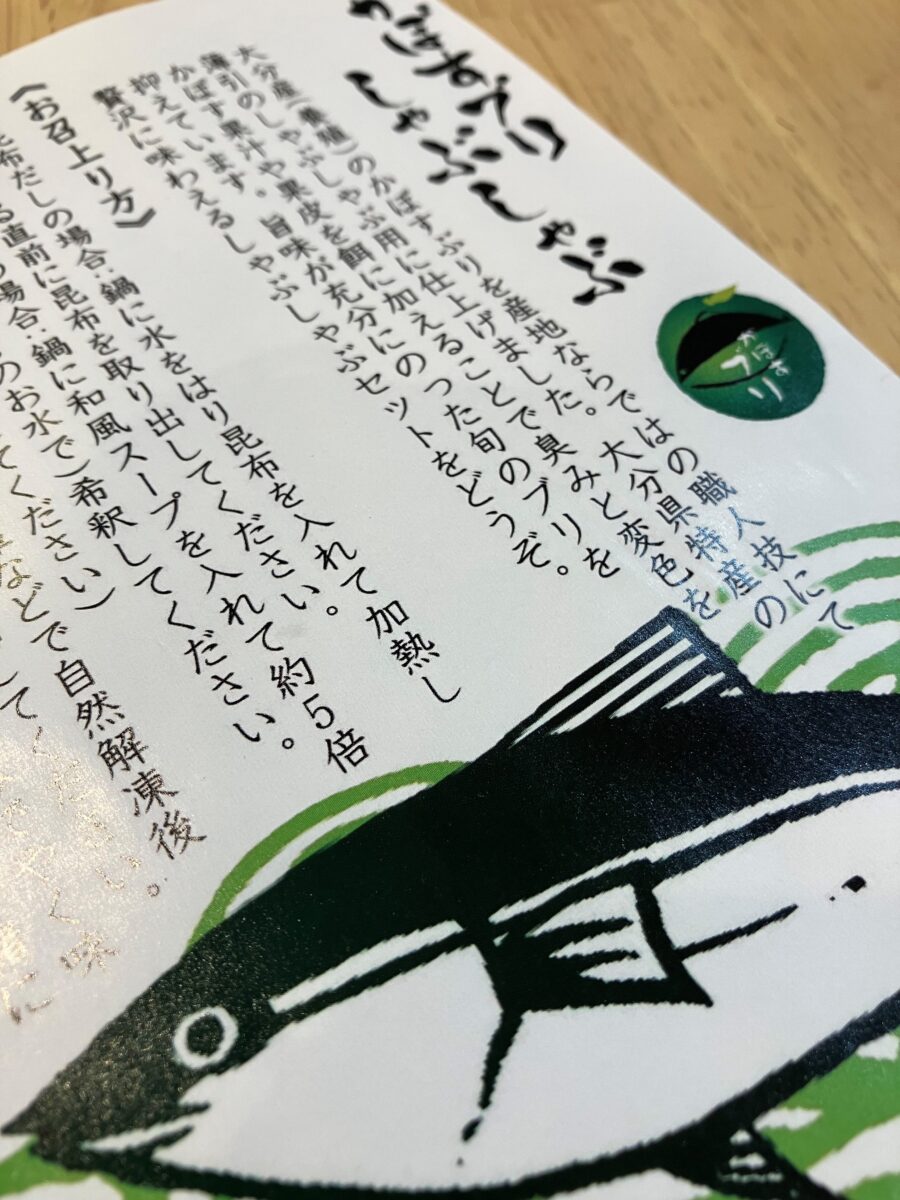 かぼすぶり
しゃぶしゃぶ
かぼす
ブリ
大分産(養殖)のかぼすぶりを産地ならではの職人技にて
薄引のしゃぶしゃぶ用に仕上げました。大分県特産の
かぼす果汁や果皮を餌に加えることで臭みと変色を
抑えています。旨味が充分にのった旬のブリを
贅沢に味わえるしゃぶしゃぶセットをどうぞ。
《お召上り方》
布だしの場合:鍋に水をはり昆布を入れて加熱し
る直前に昆布を取り出してください。
の場合:鍋に和風スープを入れて約5倍
のお水で)希釈してください。
てください)
などで自然解凍後